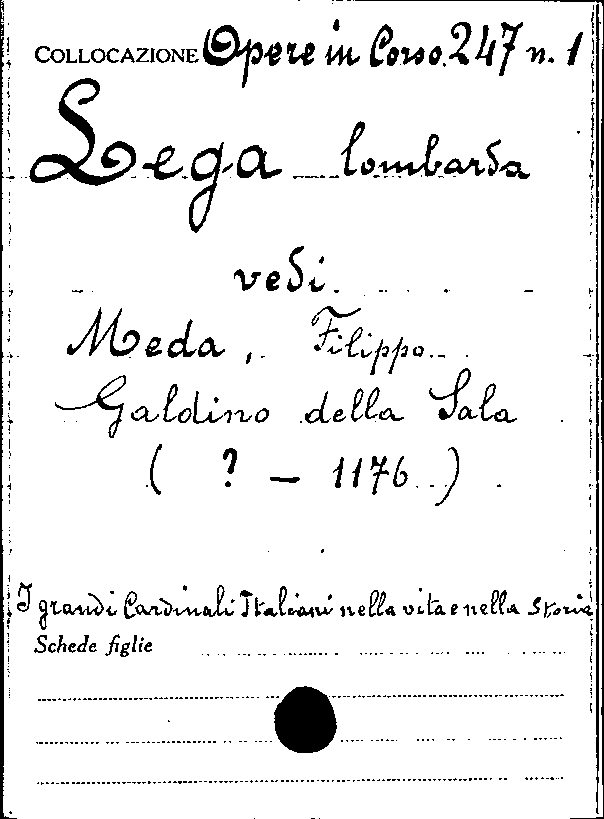 COLLOCAZIONE Opere in Corso. 247 n. 1
Lega lombarda
vedi
Meda, Filippo
Galdino della Sala
( ? - 1176 )
I grandi Cardinali Italiani nella vita e nella Storia
Schede figlie